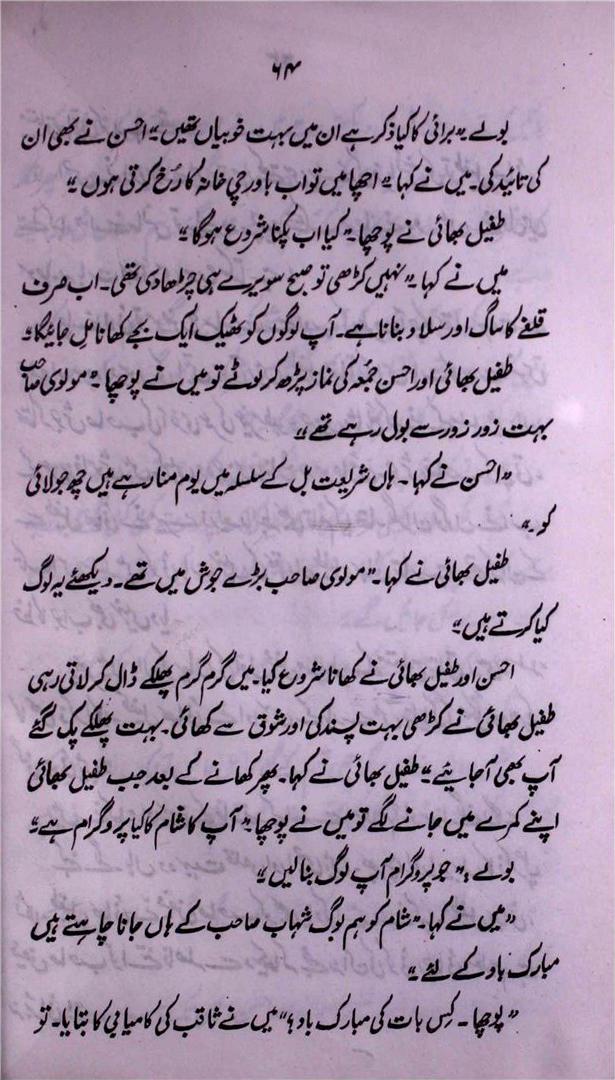 ۶۴
بولے "برائی کا کیا ذکر ہے ان میں بہت خوبیاں تھیں" احسن نے بھی ان
کی تائید کی۔ میں نے کہا "اچھا میں تو اب باورچی خانہ کا رخ کرتی ہوں"
طفیل بھائی نے پوچھا۔ "کیا اب پکنا شروع ہوگا"
میں نے کہا۔ "نہیں کڑھی تو صبح سویرے ہی چڑھا دی تھی۔ اب صرف
قلفے کا ساگ اور سلاد بنانا ہے۔ آپ لوگوں کو ٹھیک ایک بجے کھانا مل جائیگا۔"
طفیل بھائی اور احسن جمُعہ کی نماز پڑھ کر لوٹے تو میں نے پوچھا۔ "مولوی صاحب
بہت زور زور سے بول رہے تھے"
"احسن نے کہا۔ ہاں شریعت بل کے سلسلہ میں یوم منا رہے ہیں چھ جولائی
کو۔"
طفیل بھائی نے کہا۔ "مولوی صاحب بڑے جوش میں تھے۔ دیکھئے یہ لوگ
کیا کرتے ہیں"
احسن اور طفیل بھائی نے کھانا شروع کیا۔ میں گرم گرم پھلکے ڈال کر لاتی رہی
طفیل بھائی نے کڑھی بہت پسند کی اور شوق سے کھائی۔ بہت پھلکے پک گئے
آپ بھی آجائیے" طفیل بھائی نے کہا۔ پھر کھانے کے بعد جب طفیل بھائی
اپنے کمرے میں جانے لگے تو میں نے پوچھا۔ "آپ کا شام کا کیا پروگرام ہے"
بولے؛ "جو پروگرام آپ لوگ بنالیں"
"میں نے کہا۔ "شام کو ہم لوگ شہاب صاحب کے ہاں جانا چاہتے ہیں
مبارک باد کے لئے۔"
"پوچھا۔ کِس بات کی مبارک باد؟" میں نے ثاقب کی کامیابی کا بتایا۔ تو